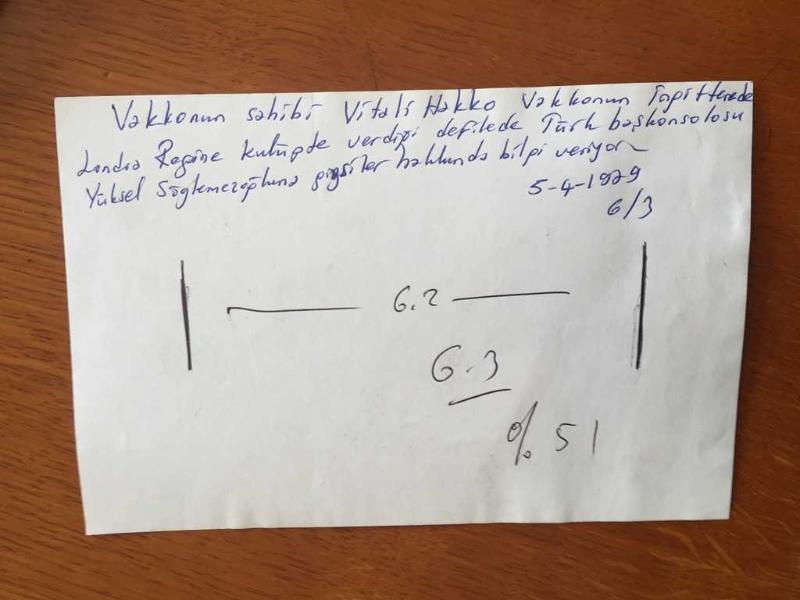 Vakkonun sahibi Vitali Hakko Vakkonun İngilterede
Londra Regine kulüpde verdiği defilede Türk başkonsolosu
Yüksel Söylemezoğluna giysiler hakkında bilgi veriyor
5-4-1979
6/3
6.2
6.3
% 51